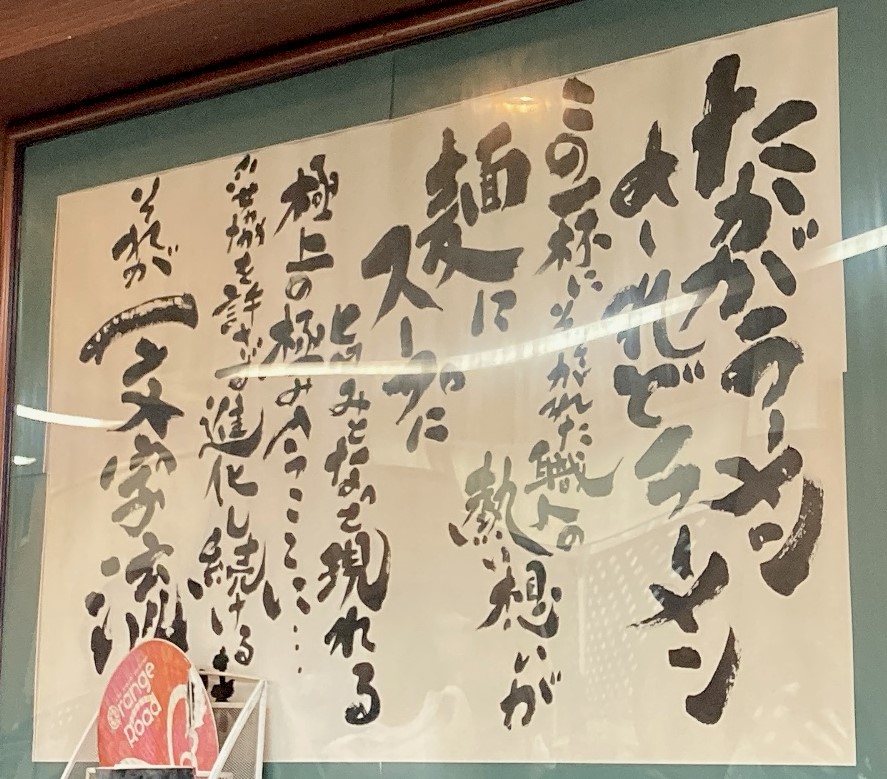 たかがラーメン
されどラーメン
この一杯にそそがれた職人の
熱い想いが
麺に
スープに
旨みとなって現れる
極上の極み今ここに…
妥協を許さず進化し続ける
それが一文字流
Orange
Road